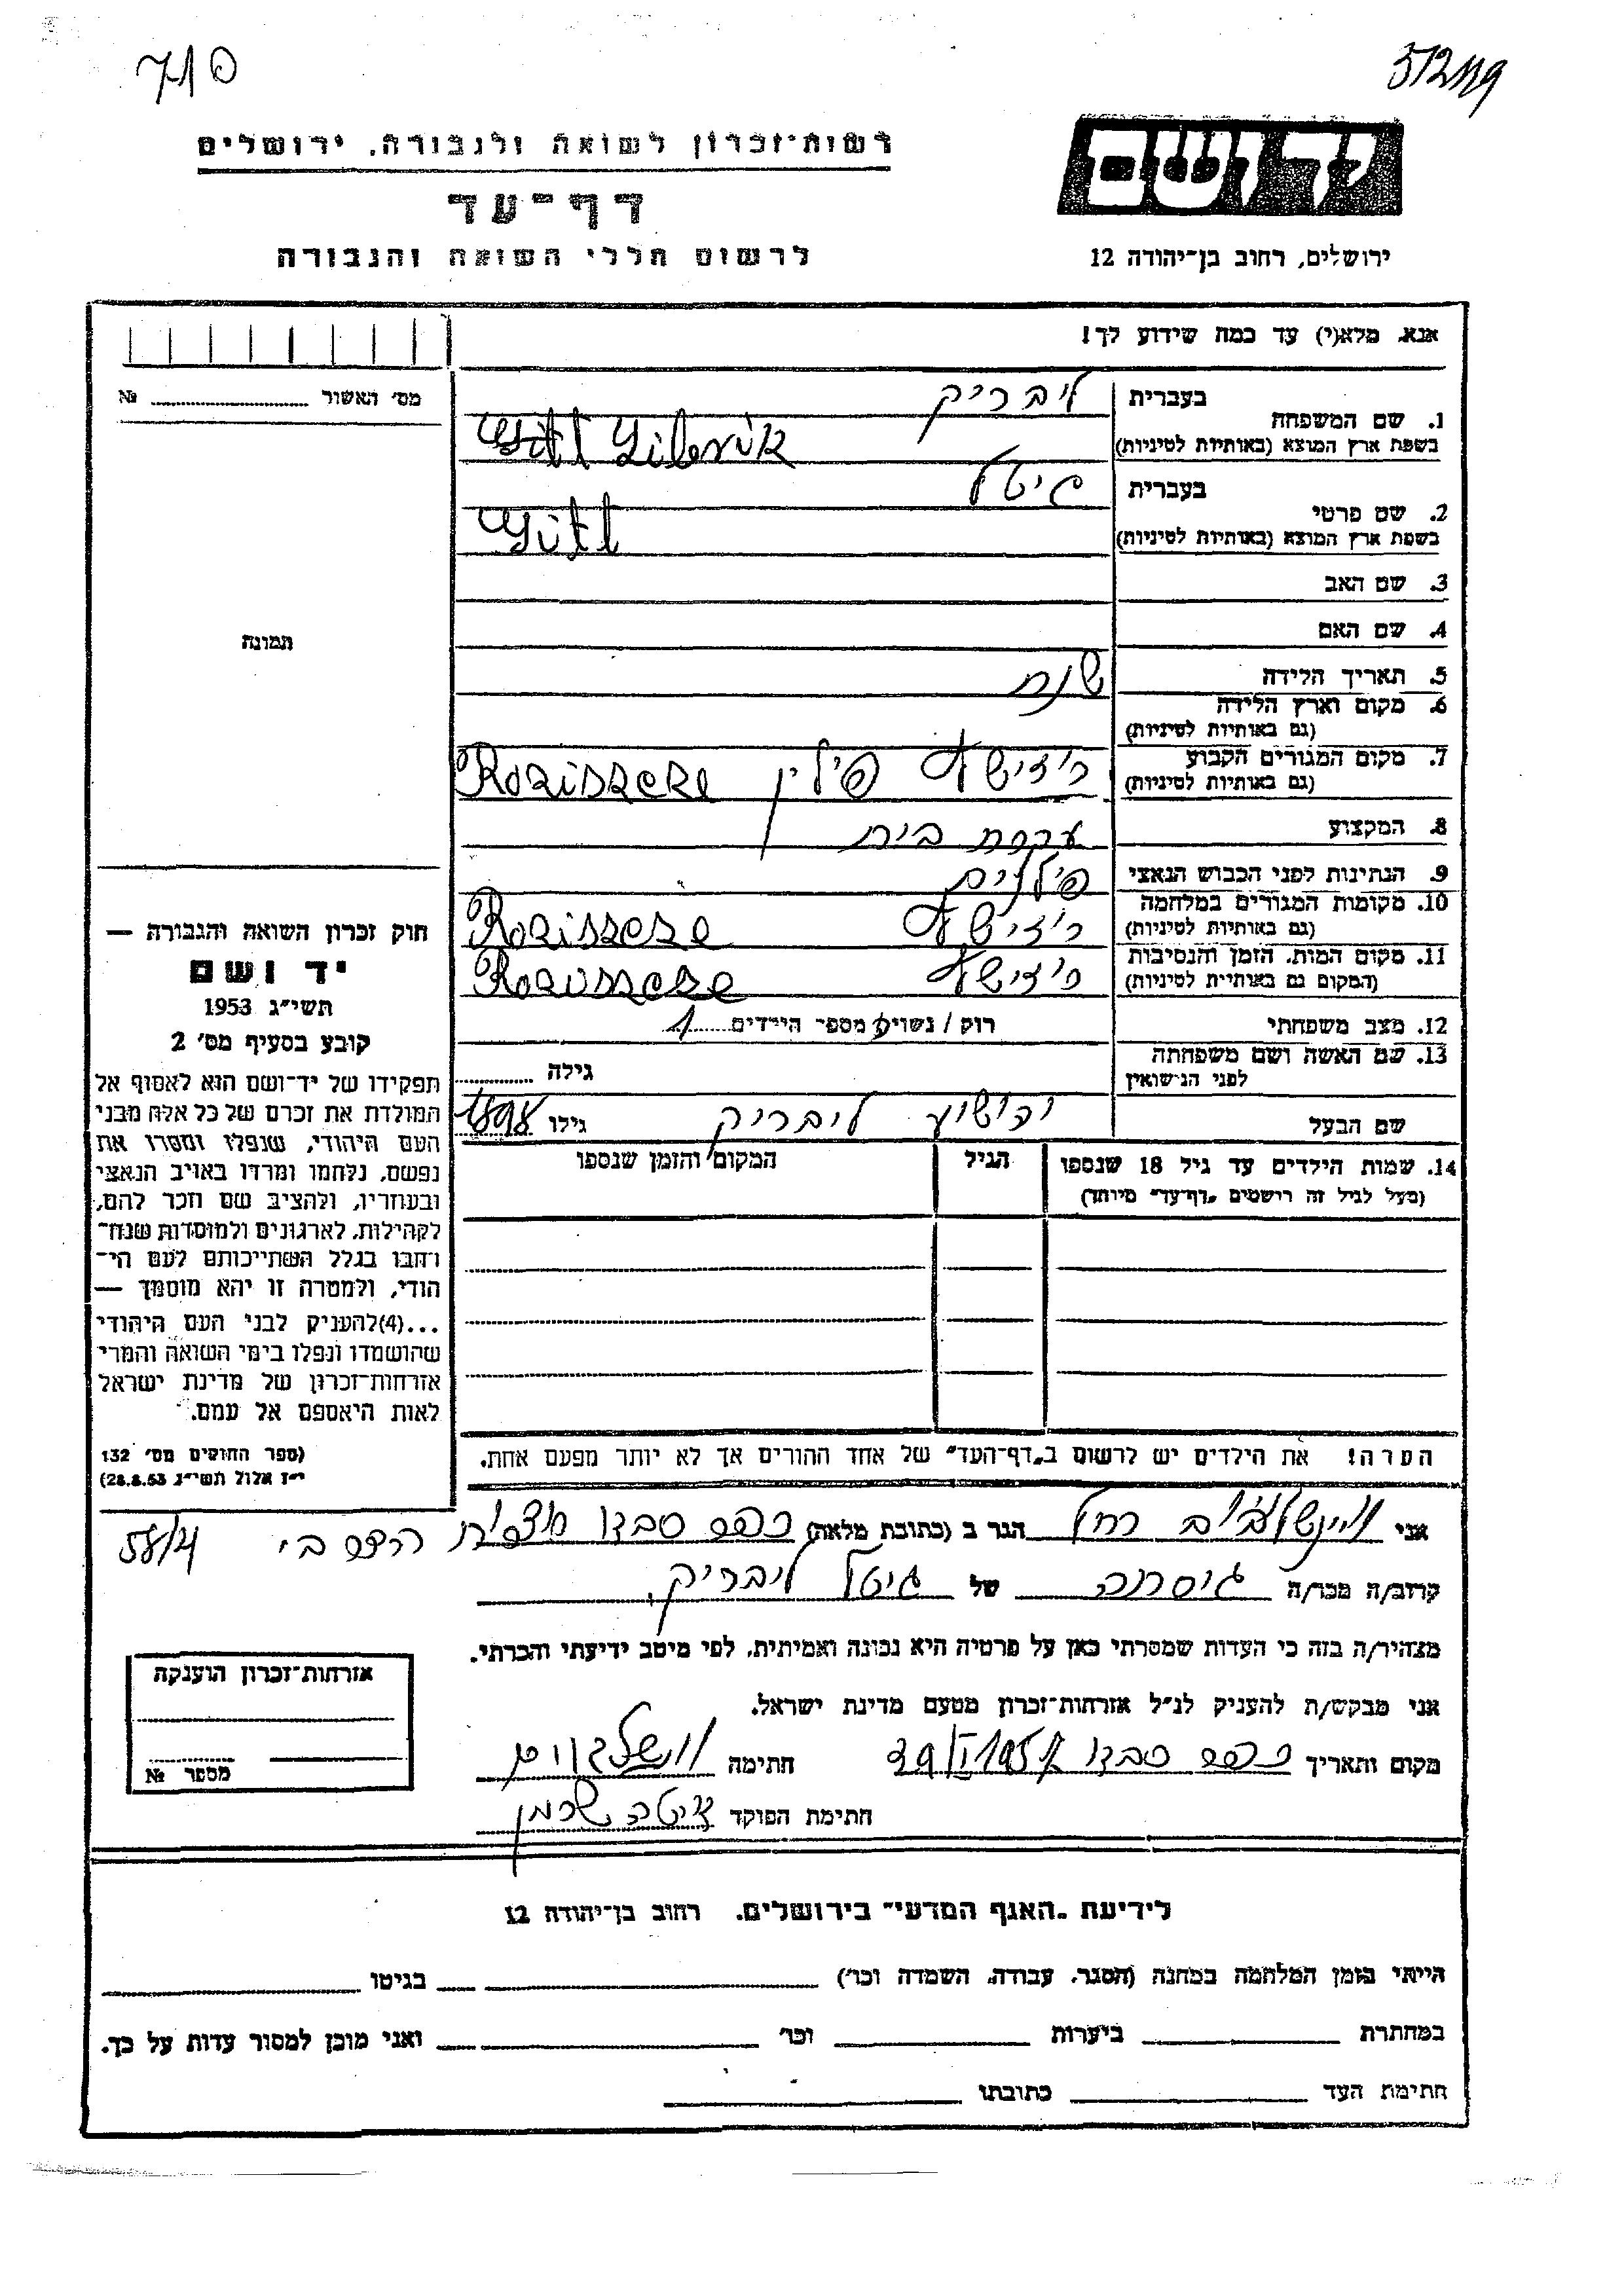 710
572119
רשות־זכרון לשואה ולגבורה, ירושלים
דף־עד
לרשום חללי השואה והגבורה
יד ושם
ירושלים, רחוב בן־יהודה 12
אנא, מלא(י) עד כמה שידוע לך!
מס׳ האשור № 
1. שם המשפחה בעברית ליבריק
בשפת ארץ המוצא (באותיות לטיניות) Librik
2. שם פרטי בעברית גיטל
בשפת ארץ המוצא (באותיות לטיניות) Gitl
3. שם האב
4. שם האם
תמונה
5. תאריך הלידה
6. מקום וארץ הלידה
(גם באותיות לטיניות)
7. מקום המגורים הקבוע פולין
(גם באותיות לטיניות)
8. המקצוע עקרת בית
9. הנתינות לפני הכבוש הנאצי
10. מקומות המגורים במלחמה
(גם באותיות לטיניות)
11. מקום המות, הזמן והנסיבות
(המקום גם באותיות לטיניות)
12. מצב משפחתי רוק / נשוי מספר הילדים 1
13. שם האשה ושם משפחתה גילה
לפני הנישואין
שם הבעל יהושע ליבריק גילו 1898
14. שמות הילדים עד גיל 18 שנספו הגיל המקום והזמן שנספו
(מעל לגיל זה רישמים „דף־עד״ מיוחד)
הערה! את הילדים יש לרשום ב„דף־העד״ של אחד ההורים אך לא יותר מפעם אחת.
חוק זכרון השואה והגבורה —
יד ושם
תשי״ג 1953
קובע בסעיף מס׳ 2
תפקידו של יד־ושם הוא לאסוף אל
המולדת את זכרם של כל אלה מבני
העם היהודי, שנפלו ומסרו את
נפשם, נלחמו ומרדו באויב הנאצי
ובעוזריו, ולהציב שם וזכר להם,
לקהילות, לארגונים ולמוסדות שנח־
רחבו בגלל השתייכותם לעם הי־
הודי, ולמטרה זו יהא מוסמך —
...(4)להעניק לבני העם היהודי
שהושמדו ונפלו בימי השואה והמרי
אזרחות־זכרון של מדינת ישראל
לאות היאספם אל עמם.
(ספר החוקים מס׳ 132
י״ז אלול תשי״ג 28.8.53)
אני רחל הגר ב (כתובת מלאה) כפר סבא 58/4
קרוב/ה מכר/ה גיסתה של גיטל ליבריק
מצהיר/ה בזה כי העדות שמסרתי כאן על פרטיה היא נכונה ואמיתית, לפי מיטב ידיעתי והכרתי.
אני מבקש/ת להעניק לנ״ל אזרחות־זכרון מטעם מדינת ישראל.
מקום ותאריך כפר סבא חתימה
חתימת הפוקד
אזרחות־זכרון הוענקה
מספר №
לידיעת „האגף המדעי״ בירושלים, רחוב בן־יהודה 12
הייתי בזמן המלחמה במחנה (הסגר, עבודה, השמדה וכו׳) בגיטו
במחתרת ביערות וכו׳ ואני מוכן למסור עדות על כך.
חתימת העד כתובתו